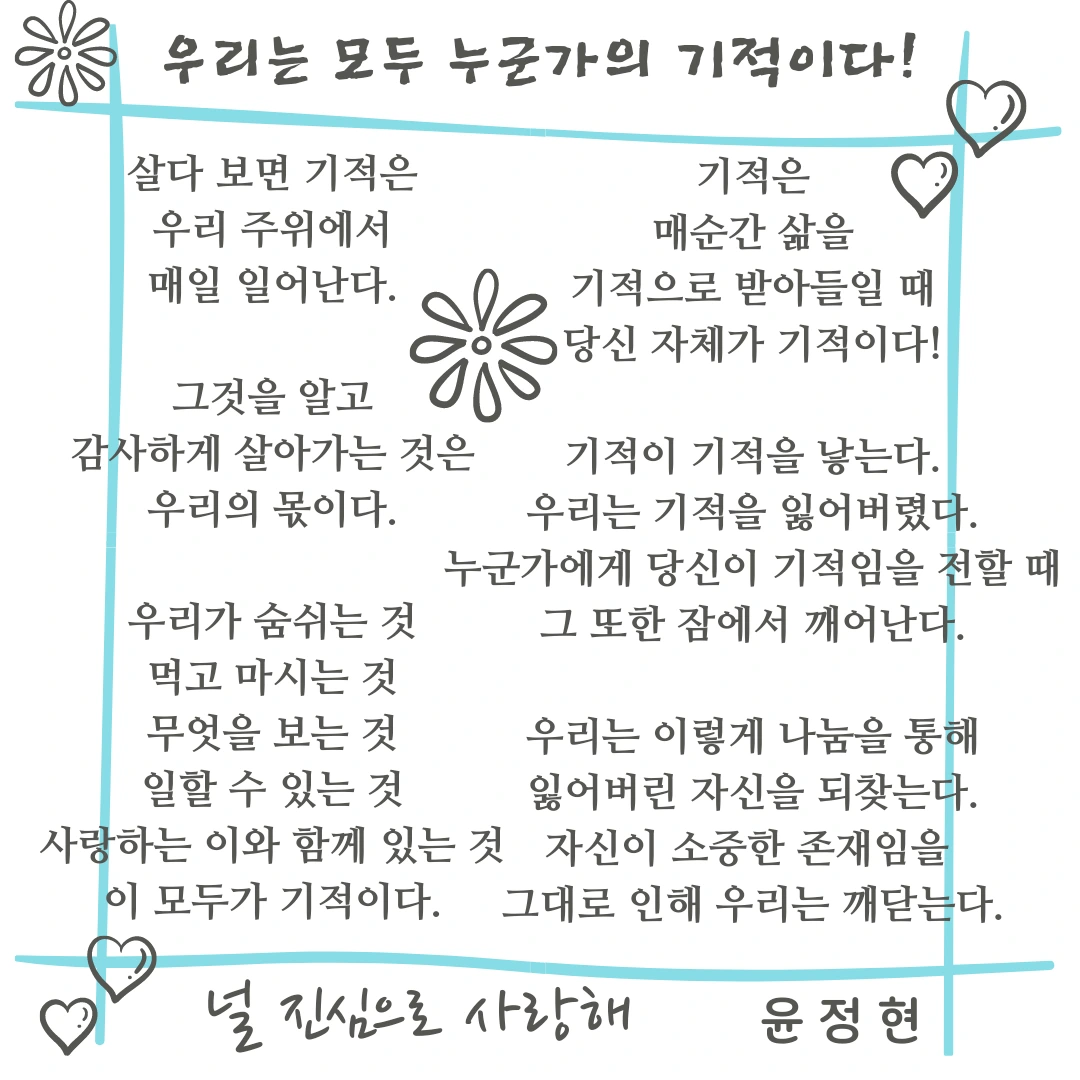 우리는 모두 누군가의 기적이다!
살다 보면 기적은
우리 주위에서
매일 일어난다.
그것을 알고
감사하게 살아가는 것은
우리의 몫이다.
우리가 숨쉬는 것
먹고 마시는 것
무엇을 보는 것
일할 수 있는 것
사랑하는 이와 함께 있는 것
이 모두가 기적이다.
기적은
매순간 삶을
기적으로 받아들일 때
당신 자체가 기적이다!
기적이 기적을 낳는다.
우리는 기적을 잃어버렸다.
누군가에게 당신이 기적임을 전할 때
그 또한 잠에서 깨어난다.
우리는 이렇게 나눔을 통해
잃어버린 자신을 되찾는다.
자신이 소중한 존재임을
그대로 인해 우리는 깨닫는다.
널 진심으로 사랑해
윤정현